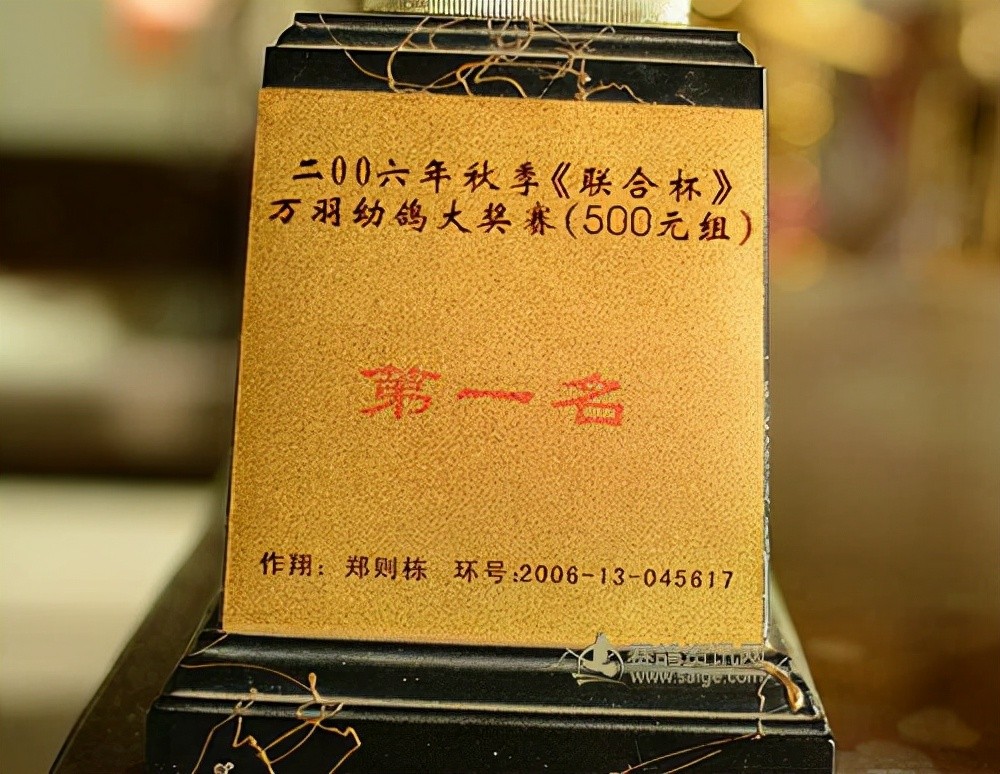 二00六年秋季《联合杯》
万羽幼鸽大奖赛(500元组)
第一名
作翔：郑则栋 环号:2006-13-045617
赛鸽资讯网
www.saige.com